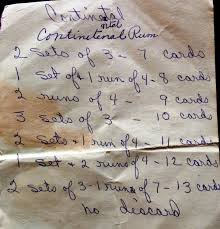 Continetal
ntal
Continetinal Rum
2 Sets of 3 - 7 cards
1 Set of + 1 run of 4 - 8 cards
2 runs of 4 - 9 cards
3 Sets of 3 - 10 cards
2 Sets + 1 run of 4 - 11 cards
1 Set + 2 runs of 4 - 12 cards
2 Sets of 3 - 1 run of 7 - 13 cards
no discard